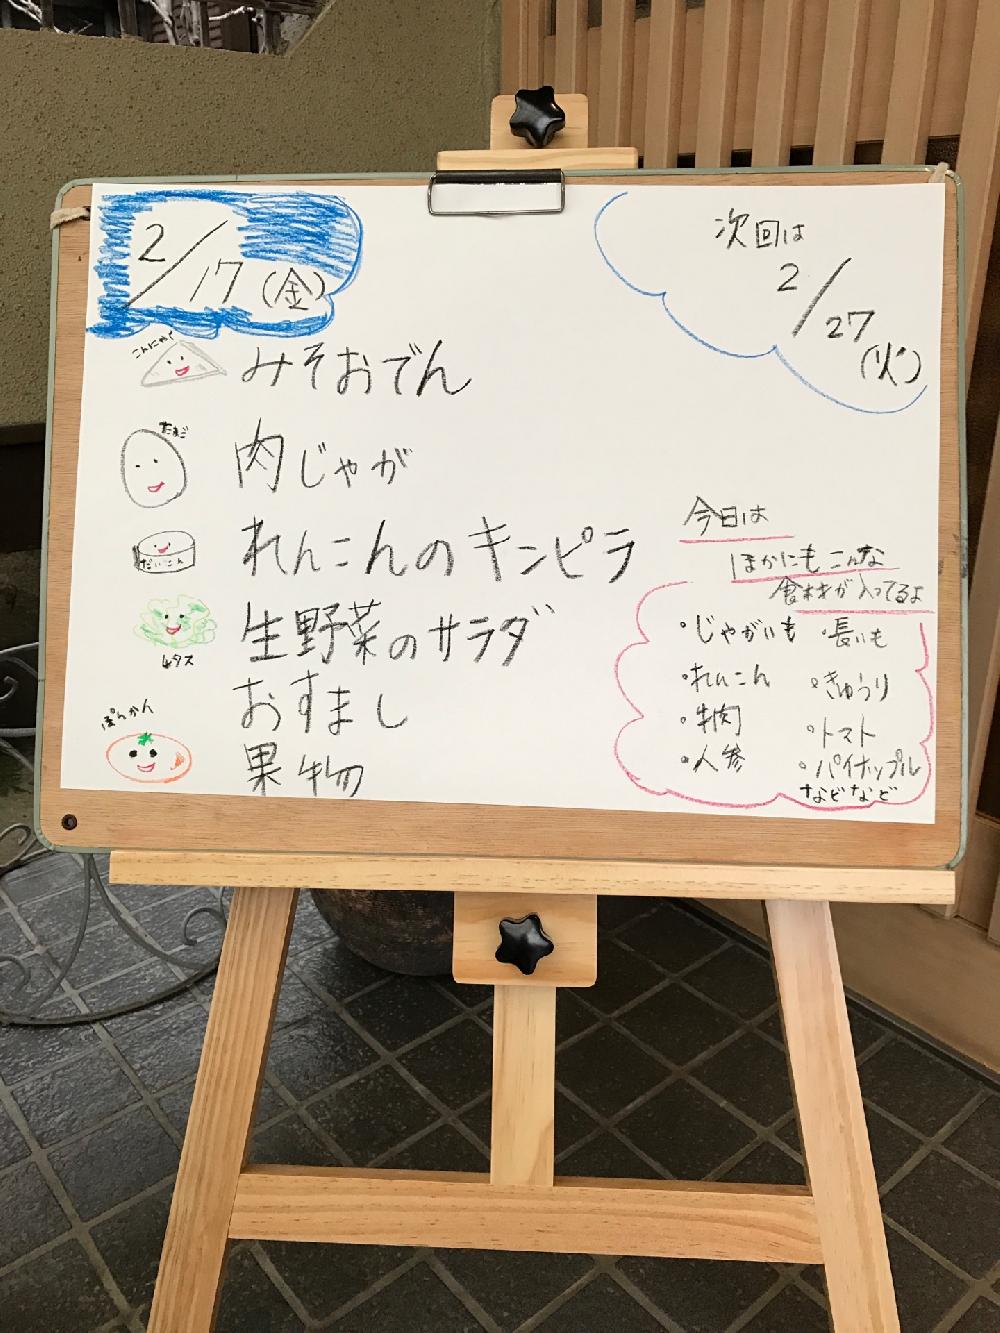 2/17(金)
こんにゃく
みそおでん
たまご
肉じゃが
だいこん
れんこんのキンピラ
レタス
生野菜のサラダ
おすまし
ぽんかん
果物
次回は
2/27
(火)
今日は
ほかにもこんな
食材が入ってるよ
・じゃがいも
・れんこん
・牛肉
・人参
・長いも
・きゅうり
・トマト
・パイナップル
などなど